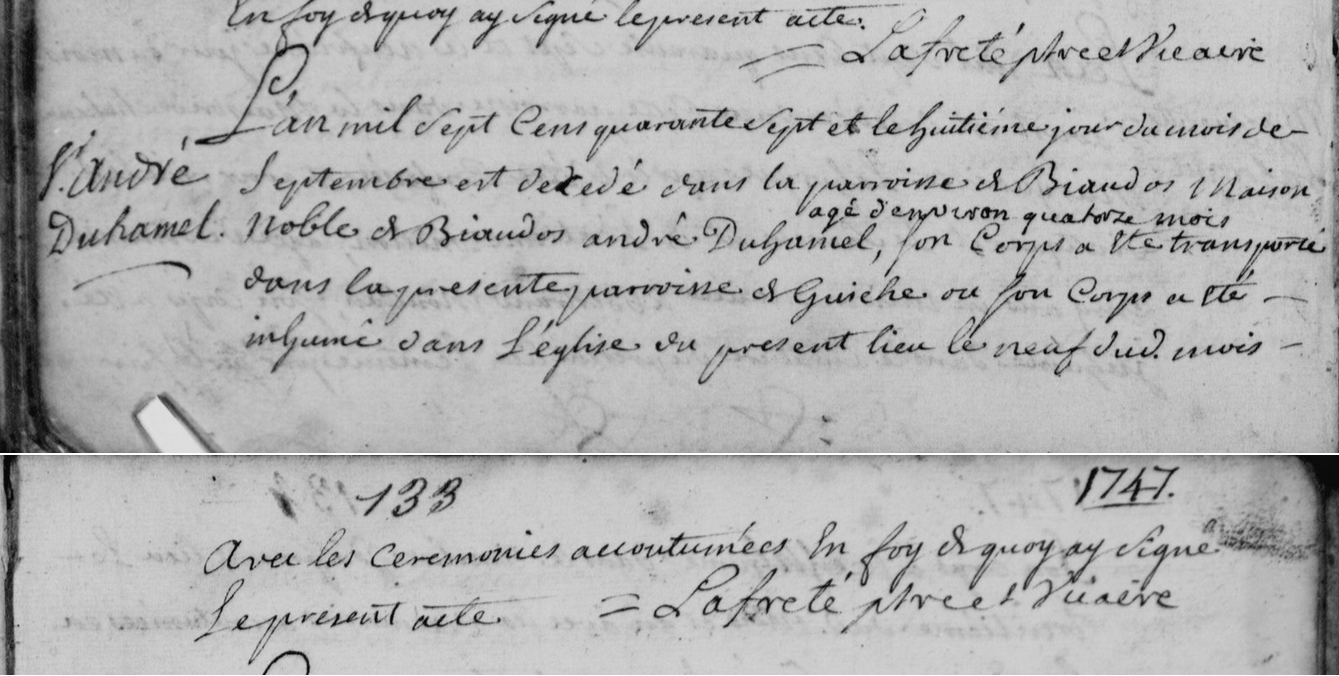 En foy de quoy ay signé le present acte.
= Lafreté ptre et Vicaire
L'an mil sept cens quarante sept et le huitiéme jour du mois de
S. André Duhamel.
Septembre est decedé dans la parroisse de Biaudos Maison
agé d'environ quatorze mois
Noble de Biaudos andré Duhamel, son Corps a eté transporté
dans la presente parroisse de Guiche ou son Corps a eté
inhumé dans L'église du present lieu le neuf dud. mois
133
1747.
Avec les ceremonies accoutumées En foy de quoy ay signé
Le present acte. = Lafreté ptre et Vicaire